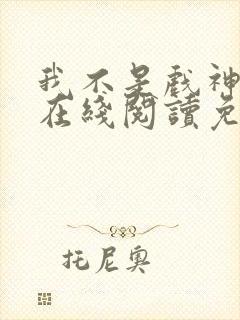 我不是戲神
在綫閱讀免
托尼奧